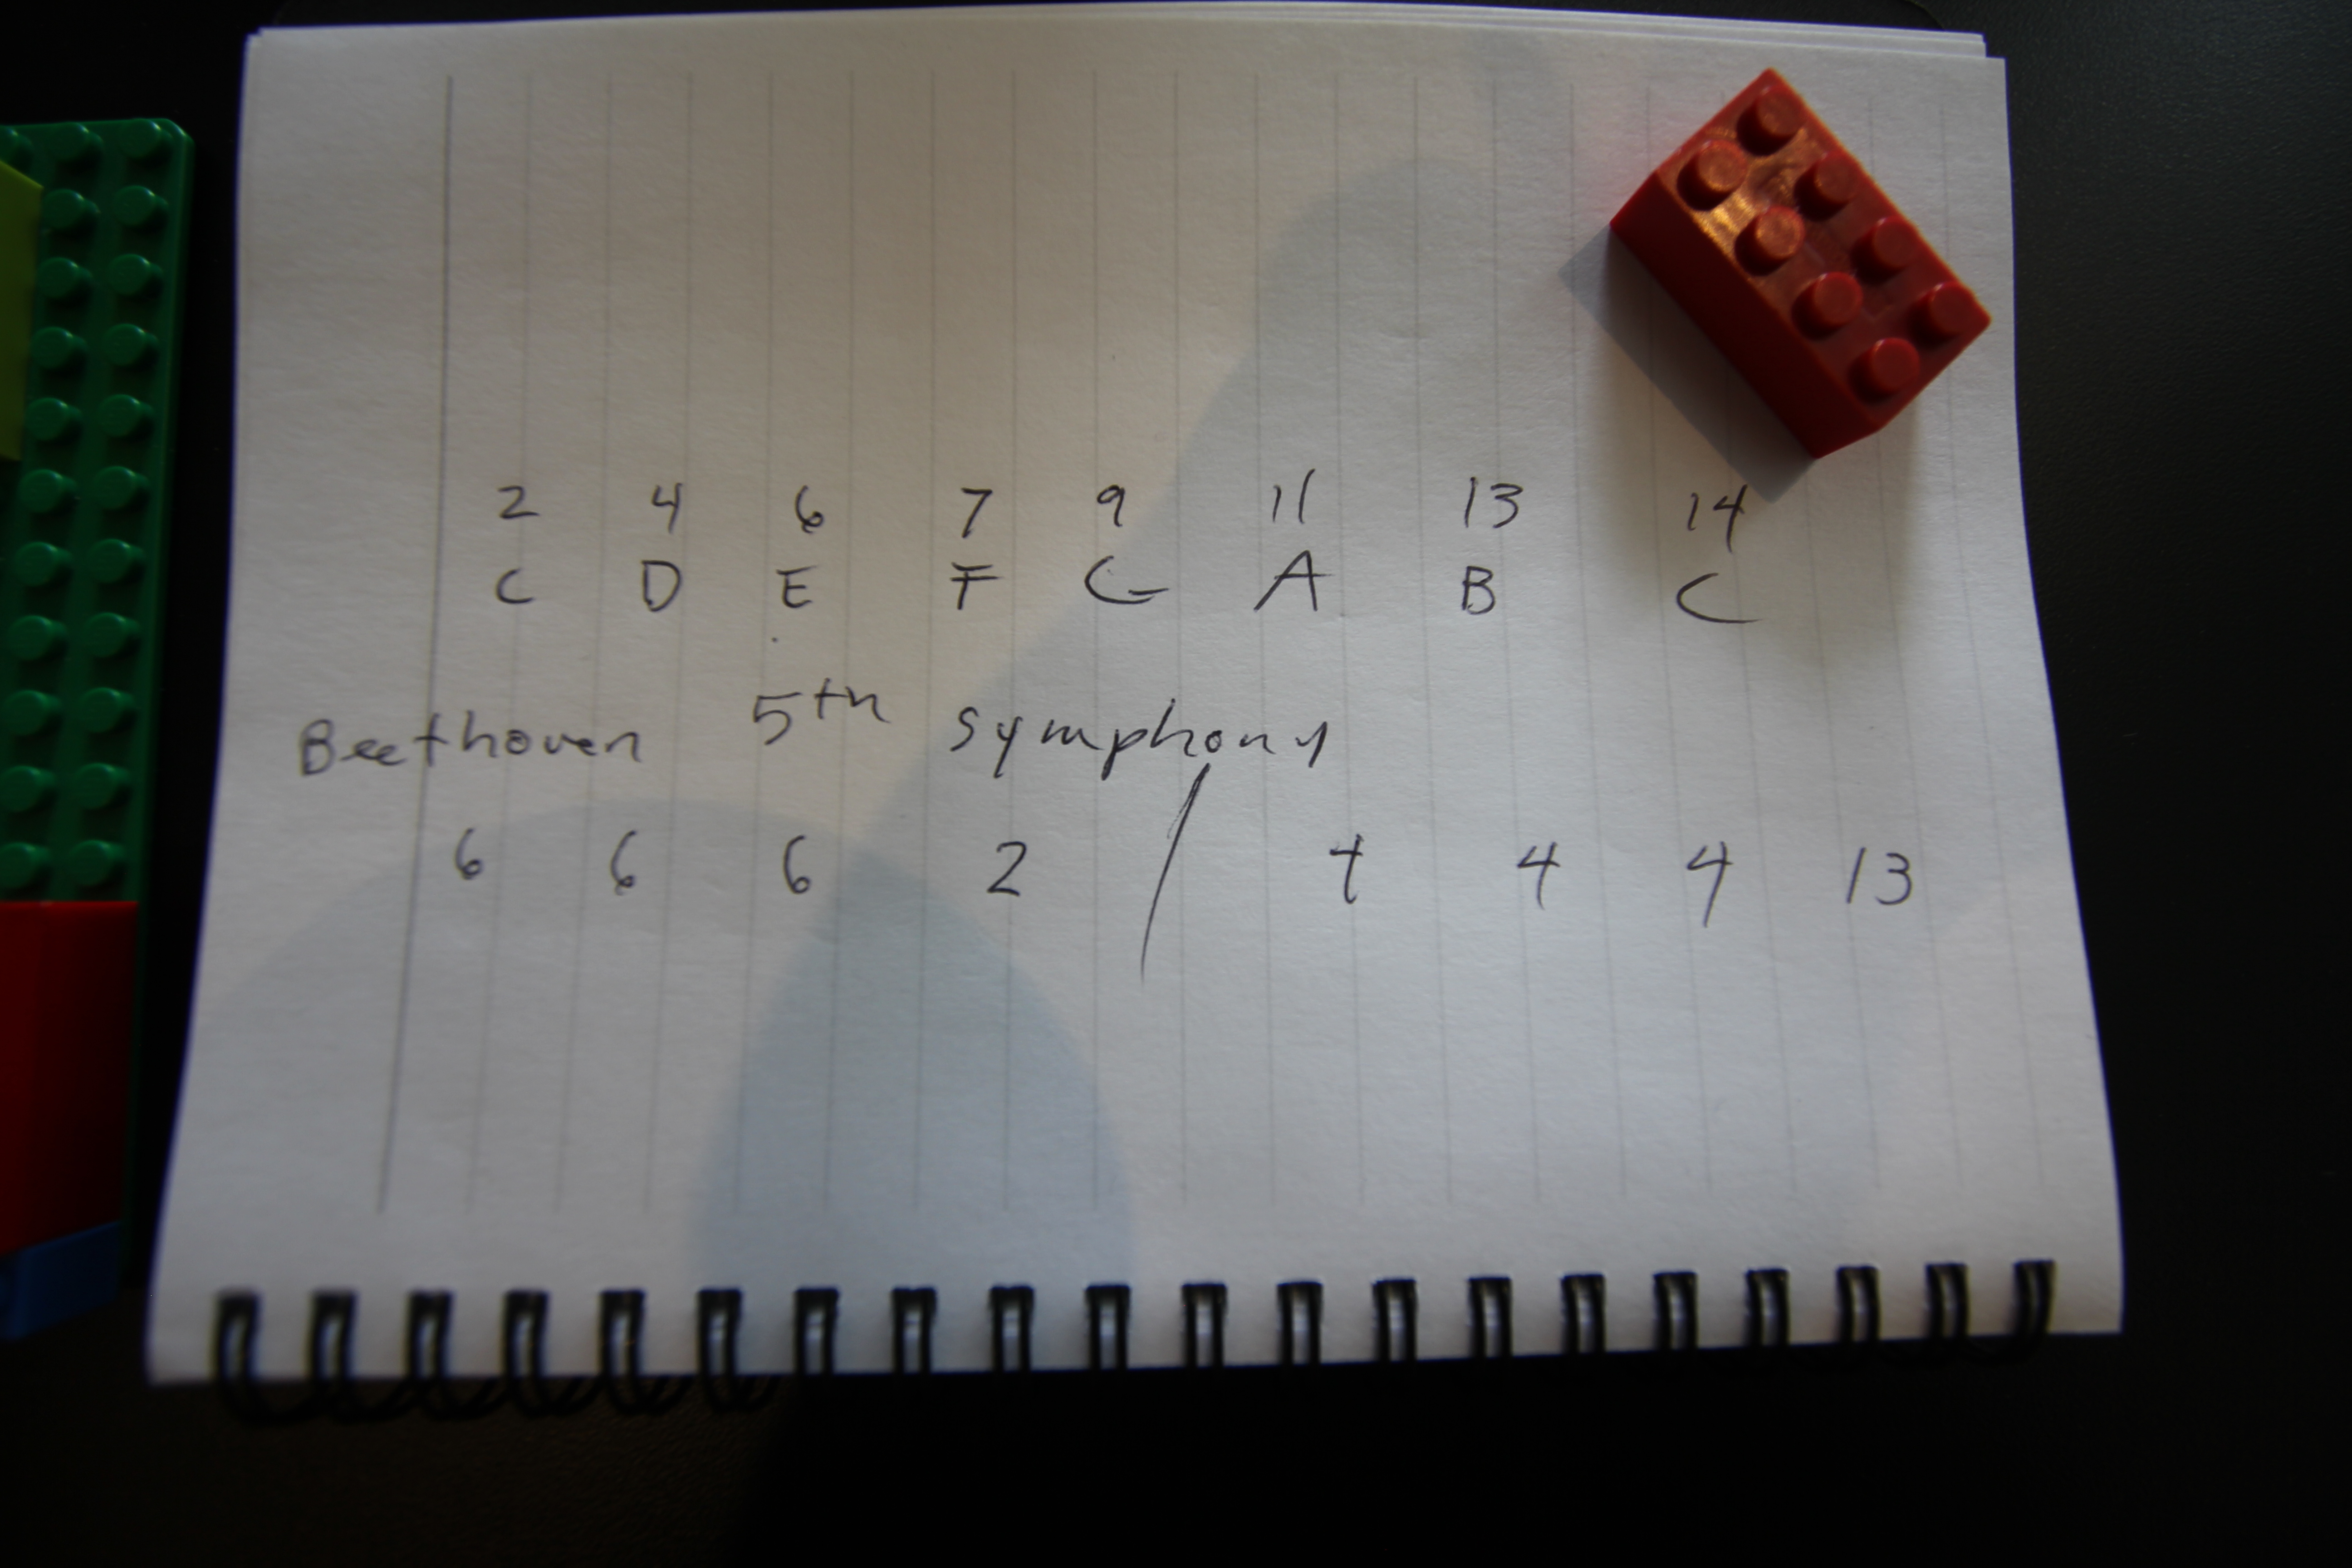 2 4 6 7 9 11 13 14
C D E F G A B C
Beethoven 5th symphony
6 6 6 2 / 4 4 4 13